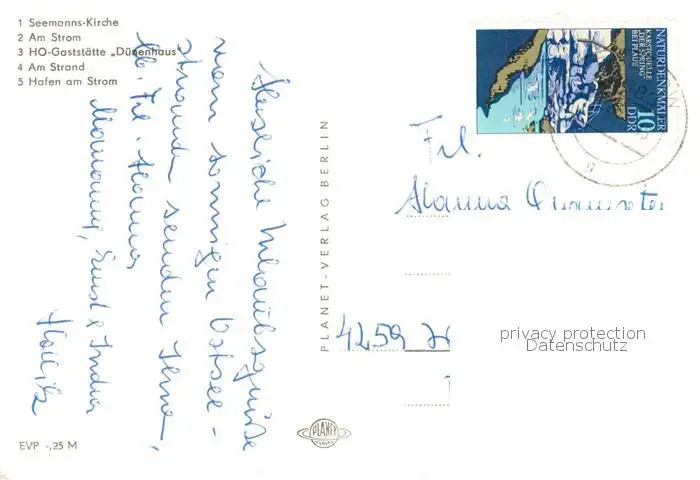 1 Seemanns-Kirche
2 Am Strom
3 HO-Gaststätte „Dünenhaus"
4 Am Strand
5 Hafen am Strom
Herzliche Urlaubsgrüße
vom sonnigen Ostsee-
strande senden Ihnen,
lb. Frl. Hanna
EVP -,25 M
PLANET-VERLAG BERLIN
PLANET
NATURDENKMÄLER
KARSTQUELLE
„DER SPRING"
BEI PLAUE
10
DDR
Frl.
Hanna
4259
privacy protection
Datenschutz